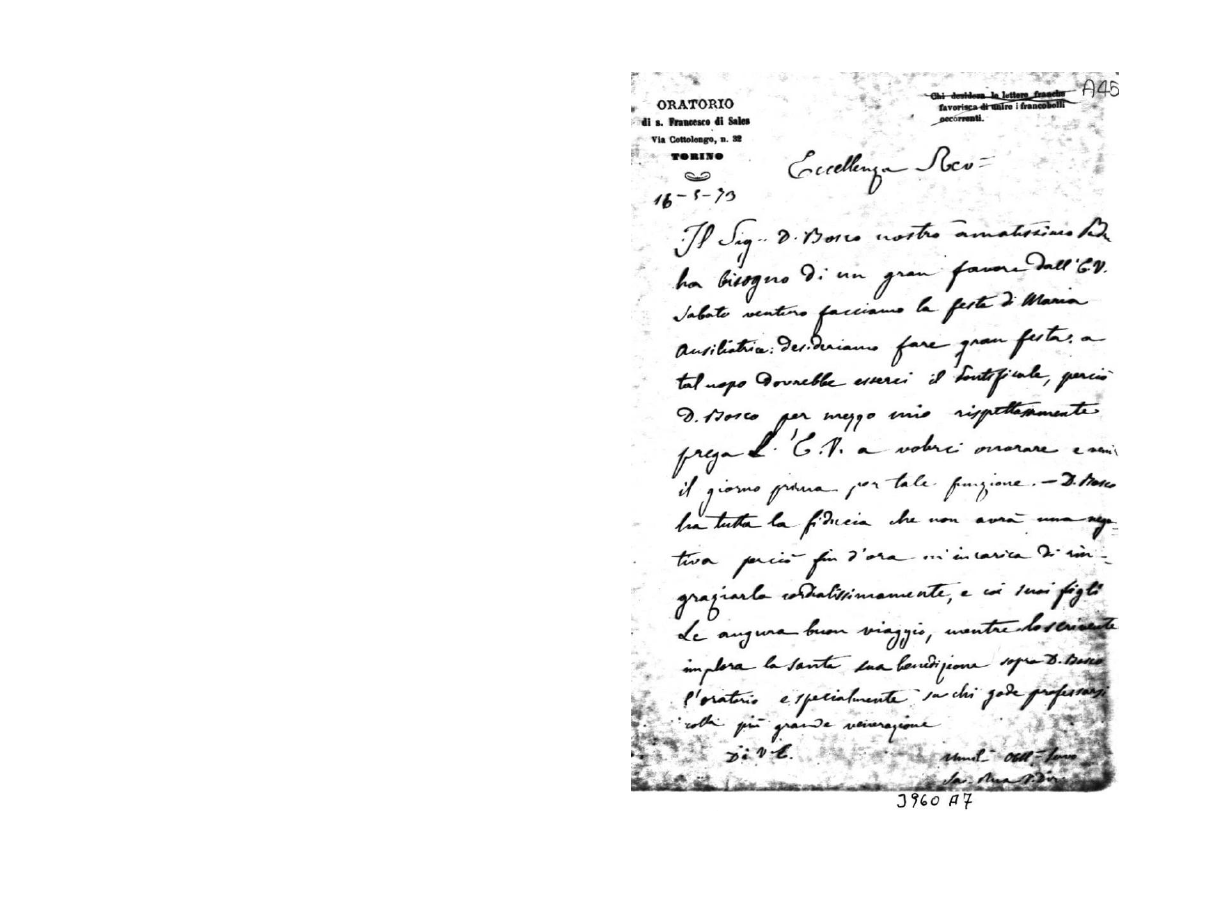 A45
ORATORIO
di s. Francesco di Sales
Via Cottolengo, n. 32
TORINO
Chi desidera la lettera franche
favorisca di unire i francobolli
occorrenti.
16-5-73
Eccellenza Rev=
Il Sig.. D. Bosco nostro amatissimo Padre
ha bisogno di un gran favore dall'E.V.
Sabato venturo facciamo la festa di Maria
Ausiliatrice: desideriamo fare gran festa. a
tal uopo dovrebbe esserci il Pontificale, perciò
D. Bosco per mezzo mio rispettosamente
prega L.'E.V. a volerci onorare e
il giorno prima per tale funzione. - D. Bosco
ha tutta la fiducia che non avrà una nega
tiva perciò fin d'ora m'incarica di rin-
graziarla cordialissimamente, e coi suoi figli
Le augura buon viaggio, mentre lo scrivente
implora la santa sua benedizione sopra D. Bosco
l'oratorio e specialmente su chi gode professarsi
colla più grande venerazione
Di V. E.
Umil- Obb-
Sac. Rua
3960 A7